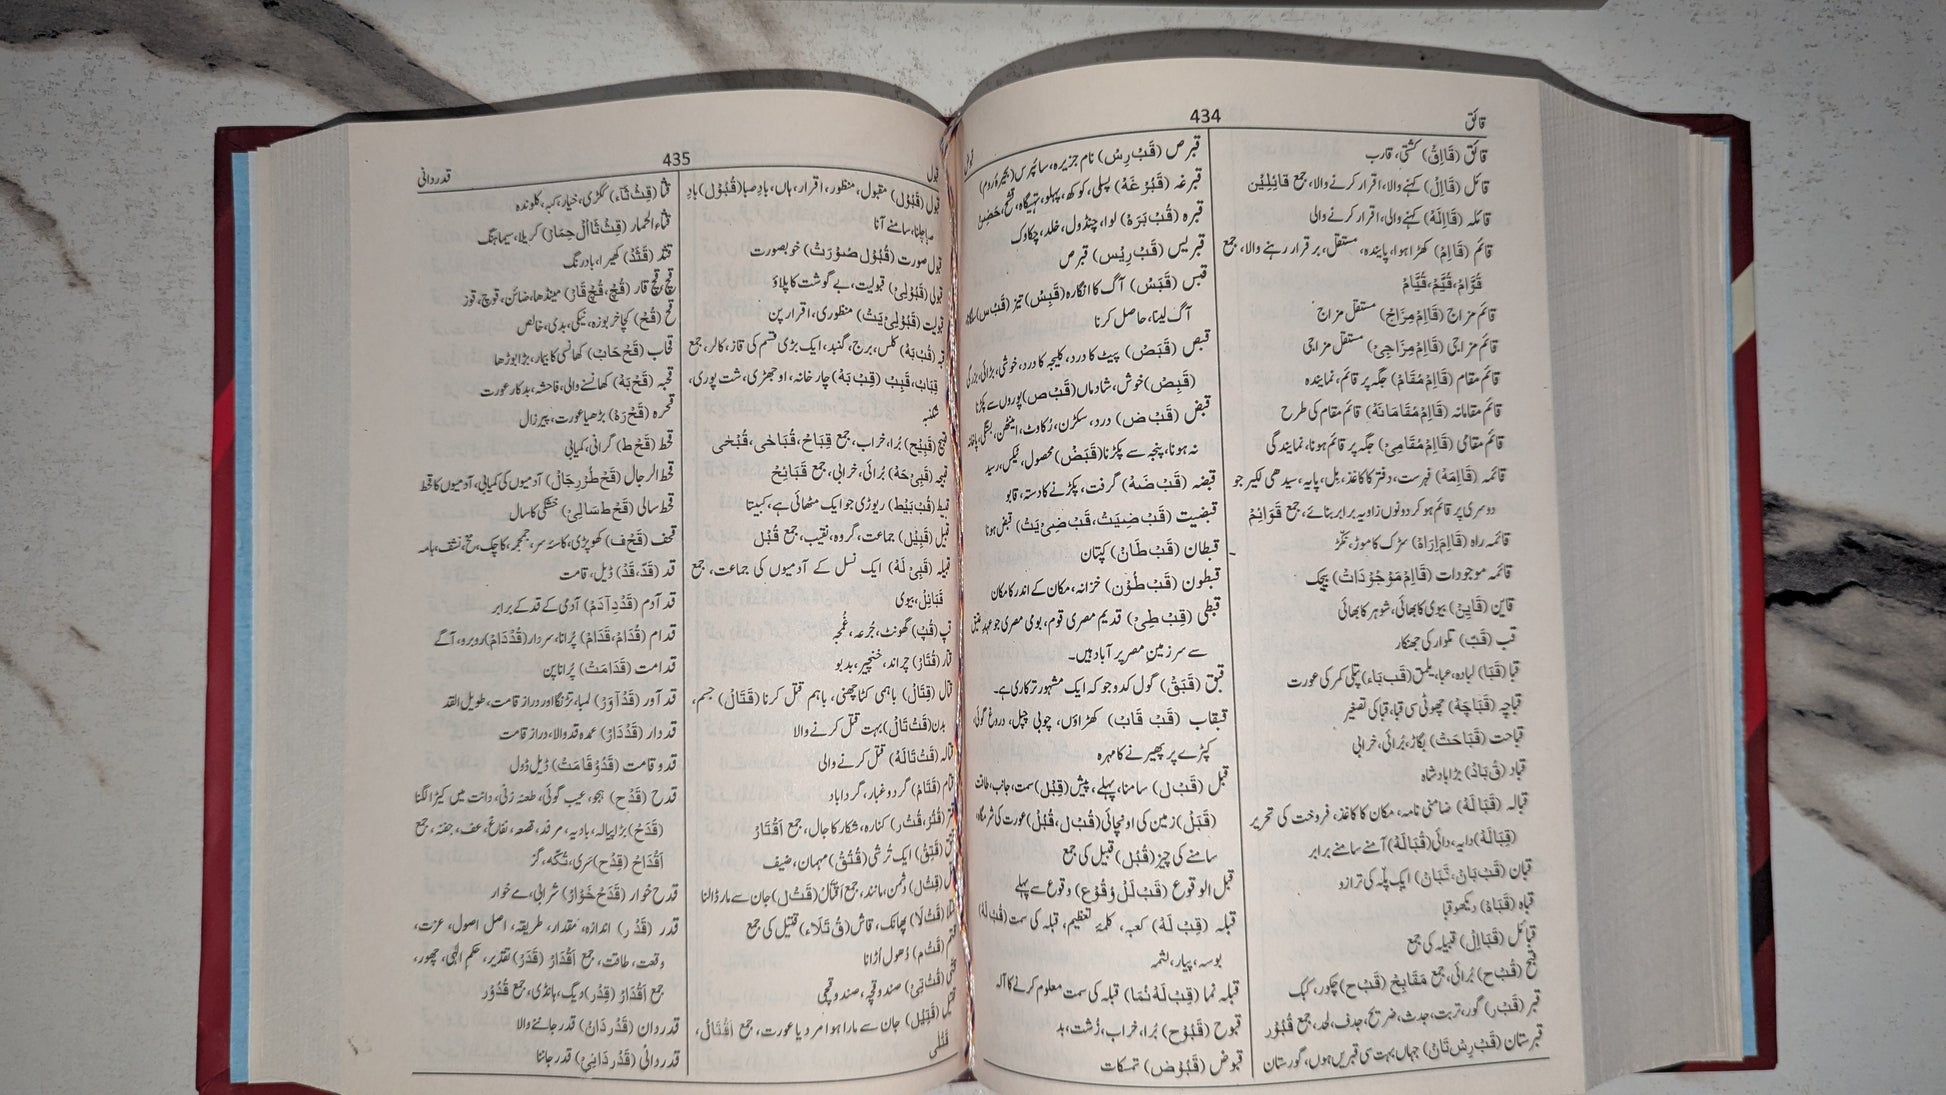 434
قائق
قائق (قَااِقْ) کشتی، قارب
قائل (قَااِلْ) کہنے والا، اقرار کرنے والا، جمع قائِلِیْن
قائلہ (قَااِلَهْ) کہنے والی، اقرار کرنے والی
قائم (قَااِمْ) کھڑا ہوا، پایندہ، مستقل، برقرار رہنے والا، جمع
قُوَّامْ، قُیَّمْ، قُیَّامْ
قائم مزاج (قَااِمْ مِزَاجْ) مستقل مزاج
قائم مزاجی (قَااِمْ مِزَاجِیْ) مستقل مزاجی
قائم مقام (قَااِمْ مُقَامْ) جگہ پر قائم، نمایندہ
قائم مقامانہ (قَااِمْ مُقَامَانَهْ) قائم مقام کی طرح
قائم مقامی (قَااِمْ مُقَامِیْ) جگہ پر قائم ہونا، نمایندگی
قائمہ (قَااِمَهْ) فہرست، دفتر کا کاغذ، بل، پایہ، سیدھی لکیر جو
دوسری پر قائم ہو کر دونوں زاویہ برابر بنائے، جمع قَوَائِمْ
قائمہ راہ (قَااِمَ اِرَاهْ) سڑک کا موڑ، نکڑ
قائمہ موجودات (قَااِمْ مَوْجُوْدَاتْ) بیچک
قاین (قَایِنْ) بیوی کا بھائی، شوہر کا بھائی
قب (قَبّ) تلوار کی جھنکار
قبا (قَبَا) لبادہ، عبا، یلمق (قَب بَاء) پتلی کمر کی عورت
قباچہ (قَبَاچَهْ) چھوٹی سی قبا، قبا کی تصغیر
قباحت (قَبَاحَتْ) بگاڑ، بُرائی، خرابی
قباد (قُ بَادْ) بڑا بادشاہ
قبالہ (قَبَالَهْ) ضامنی نامہ، مکان کا کاغذ، فروخت کی تحریر
(قِبَالَهْ) دایہ، دائی (قُبَالَهْ) آمنے سامنے برابر
قبان (قَبْ بَانْ، قَبَانْ) ایک پلّہ کی ترازو
قباہ (قَبَاهْ) دیکھو قبا
قبائل (قَبَااِلْ) قبیلہ کی جمع
قبح (قُبْ ح) بُرائی، جمع مَقَابِحْ (قَبْ ح) چکور، کبک
قبر (قَبْ ر) گور، تربت، جدث، ضریح، جدف، لحد، جمع قُبُوْر
قبرستان (قَبْ رِسْ تَانْ) جہاں بہت سی قبریں ہوں، گورستان
قبرص (قَبْ رِسْ) نام جزیرہ، سائپرس (بحیرۂ روم)
قبرغہ (قَبُرْغَهْ) پسلی، کوکھ، پہلو، تہیگاہ،
قبرہ (قُبْ بَرَهْ) لوا، چنڈول، خلد، چکاوک
قبریس (قَبْ رِیْس) قبرص
قبس (قَبَسْ) آگ کا انگارہ (قَبِسْ) تیز (قَبْ س)
آگ لینا، حاصل کرنا
قبص (قَبَصْ) پیٹ کا درد، کلیجہ کا درد، خوشی، بڑائی،
(قَبِصْ) خوش، شادماں (قَبْ ص) پوروں سے پکڑنا
قبض (قَبْ ض) درد، سکڑن، رُکاوٹ، اینٹھن،
نہ ہونا، پنجہ سے پکڑنا (قَبَضْ) محصول، ٹیکس، رسید
قبضہ (قَبْ ضَهْ) گرفت، پکڑنے کا دستہ، قابو
قبضیت (قَبْ ضِیَتْ، قَبْ ضِیْ یَتْ) قبض ہونا
قبطان (قَبْ طَانْ) کپتان
قبطون (قَبْ طُوْن) خزانہ، مکان کے اندر کا مکان
قبطی (قِبْ طِیْ) قدیم مصری قوم، بومی مصری جو عہدِ عتیق
سے سرزمینِ مصر پر آباد ہیں۔
قبق (قَبَقْ) گول کدو جو کہ ایک مشہور ترکاری ہے۔
قبقاب (قَبْ قَابْ) کھڑاؤں، چوبی چپل، دروغ گوئی
کپڑے پر پھیرنے کا مہرہ
قبل (قَبْ ل) سامنا، پہلے، پیش (قِبَلْ) سمت، جانب، طاقت
(قَبَلْ) زمین کی اونچائی (قُبْ ل، قُبُلْ) عورت کی شرمگاہ
سامنے کی چیز (قُبُل) قبیل کی جمع
قبل الوقوع (قَبْ لَلْ وُقُوْع) وقوع سے پہلے
قبلہ (قِبْ لَهْ) کعبہ، کلمۂ تعظیم، قبلہ کی سمت (قُبْ لَهْ)
بوسہ، پیار، لثمہ
قبلہ نما (قِبْ لَهْ نُمَا) قبلہ کی سمت معلوم کرنے کا آلہ
قبوح (قَبُوْح) بُرا، خراب، زُشت، بد
قبوض (قَبُوْض) تمسکات
435
قبول
قدردانی
قبول (قَبُوْل) مقبول، منظور، اقرار، ہاں، بادِ صبا (قُبُوْل) بادِ
صبا چلنا، سامنے آنا
قبول صورت (قُبُوْل صُوْرَتْ) خوبصورت
قبولی (قَبُوْلِیْ) قبولیت، بے گوشت کا پلاؤ
قبولیت (قَبُوْلِیْ یَتْ) منظوری، اقرار پن
قبہ (قُبْ بَهْ) کلس، برج، گنبد، ایک بڑی قسم کی قاز، کالر، جمع
قِبَابْ، قُبَبْ (قِبْ بَهْ) چار خانہ، اوجھڑی، شت پوری،
شکنبہ
قبیح (قَبِیْح) بُرا، خراب، جمع قِبَاحْ، قُبَاحٰی، قُبْحٰی
قبیحہ (قَبِیْ حَهْ) بُرائی، خرابی، جمع قَبَائِحْ
قبیط (قُبْ بَیْط) ریوڑی جو ایک مٹھائی ہے، کبیتا
قبیل (قَبِیْل) جماعت، گروہ، نقیب، جمع قُبُل
قبیلہ (قَبِیْ لَهْ) ایک نسل کے آدمیوں کی جماعت، جمع
قَبَائِلْ، بیوی
قپ (قُپْ) گھونٹ، جُرعہ، غُمجہ
قتار (قُتَارْ) چراند، خنچیر، بدبو
قتال (قِتَالْ) باہمی کٹا چھنی، باہم قتل کرنا (قَتَالْ) جسم،
بدن (قَتْ تَالْ) بہت قتل کرنے والا
قتالہ (قَتْ تَالَهْ) قتل کرنے والی
قتام (قَتَامْ) گرد و غبار، گرداباد
قتر (قُتُرْ، قُتْ ر) کنارہ، شکار کا جال، جمع اَقْتَارْ
قتق (قَتِقْ) ایک تُرشی (قُتُقْ) مہمان، ضیف
قتل (قِتْ ل) دشمن، مانند، جمع اَقْتَالْ (قَتْ ل) جان سے مار ڈالنا
قتلا (قَتْ لَا) پھانک، قاش (قُ تَلَاء) قتیل کی جمع
قتم (قَتْ م) دُھول اُڑانا
قتی (قُتْ تِیْ) صندوقچہ، صندوقچی
قتیل (قَتِیْل) جان سے مارا ہوا مرد یا عورت، جمع اَقْتَالْ،
قَتْلٰی
قثا (قِثْ ثَاء) ککڑی، خیار، کمبہ، کلوندہ
قثاء الحمار (قِثْ ثَا اُلْ حِمَارْ) کریلا، سیماہنگ
قثد (قَثَدْ) کھیرا، بادرنگ
قچ، قچ قار (قُچْ، قُچْ قَارْ) مینڈھا، ضائن، قوچ، قوز
قح (قُحْ) کچا خربوزہ، نیکی، بدی، خالص
قحاب (قَحْ حَابْ) کھانسی کا بیمار، بڑا بوڑھا
قحبہ (قَحْ بَهْ) کھانسنے والی، فاحشہ، بدکار عورت
قحرہ (قَحْ رَهْ) بڑھیا عورت، پیر زال
قحط (قَحْ ط) گرانی، کمیابی
قحط الرجال (قَحْ طُوْرِجَالْ) آدمیوں کی کمیابی، آدمیوں کا قحط
قحط سالی (قَحْ ط سَالِیْ) خشکی کا سال
قحف (قَحْ ف) کھوپڑی، کاسۂ سر، جمجمہ، کاچک، مخ، نشف، ہامہ
قد (قَدّ، قَدْ) ڈیل، قامت
قد آدم (قَدْدِ آدَمْ) آدمی کے قد کے برابر
قدام (قُدَامْ، قَدَامْ) پُرانا، سردار (قُدْدَامْ) روبرو، آگے
قدامت (قَدَامَتْ) پُرانا پن
قد آور (قَدْ آوَرْ) لمبا، تڑنگا اور دراز قامت، طویل القد
قد دار (قَدْدَارْ) عمدہ قد والا، دراز قامت
قد و قامت (قَدْوُ قَامَتْ) ڈیل ڈول
قدح (قَدْح) ہجو، عیب گوئی، طعنہ زنی، دانت میں کیڑا لگنا
(قَدَحْ) بڑا پیالہ، بادیہ، مرفد، قصعہ، نفاغ، عف، جفنہ، جمع
اَقْدَاحْ (قِدْح) سَری، تُکّہ، گز
قدح خوار (قَدَحْ خَوَارْ) شرابی، مے خوار
قدر (قَدْ ر) اندازہ، مقدار، طریقہ، اصل اصول، عزت،
وقعت، طاقت، جمع اَقْدَارْ (قَدَرْ) تقدیر، حکمِ الٰہی، چھور،
جمع اَقْدَارْ (قِدْر) دیگ، ہانڈی، جمع قُدُوْر
قدردان (قَدْر دَانْ) قدر جاننے والا
قدردانی (قَدْر دَانِیْ) قدر جاننا